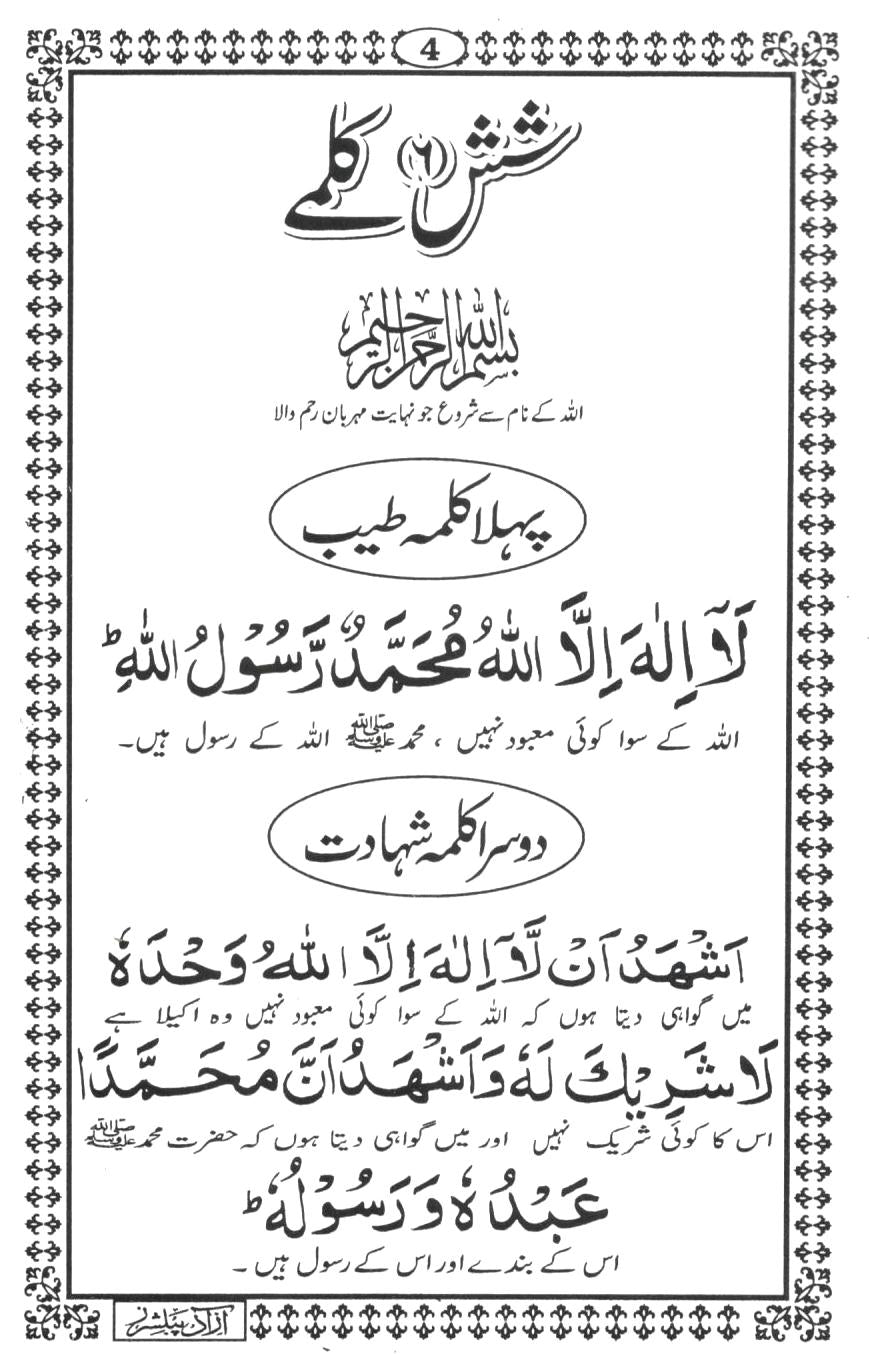 4
شش ۶ کلمے
بسم اللہ الرحمن الرحیم
اللہ کے نام سے شروع جو نہایت مہربان رحم والا
پہلا کلمہ طیب
لَآ اِلٰہَ اِلَّا اللّٰہُ مُحَمَّدٌ رَّسُوْلُ اللّٰہِ ؕ
اللہ کے سوا کوئی معبود نہیں ، محمد ﷺ اللہ کے رسول ہیں۔
دوسرا کلمہ شہادت
اَشْھَدُ اَنْ لَّآ اِلٰہَ اِلَّا اللّٰہُ وَحْدَہٗ
میں گواہی دیتا ہوں کہ اللہ کے سوا کوئی معبود نہیں وہ اکیلا ہے
لَا شَرِیْكَ لَہٗ وَاَشْھَدُ اَنَّ مُحَمَّدًا
اس کا کوئی شریک نہیں اور میں گواہی دیتا ہوں کہ حضرت محمد ﷺ
عَبْدُہٗ وَرَسُوْلُہٗ ؕ
اس کے بندے اور اس کے رسول ہیں ۔
آزاد پبلشرز